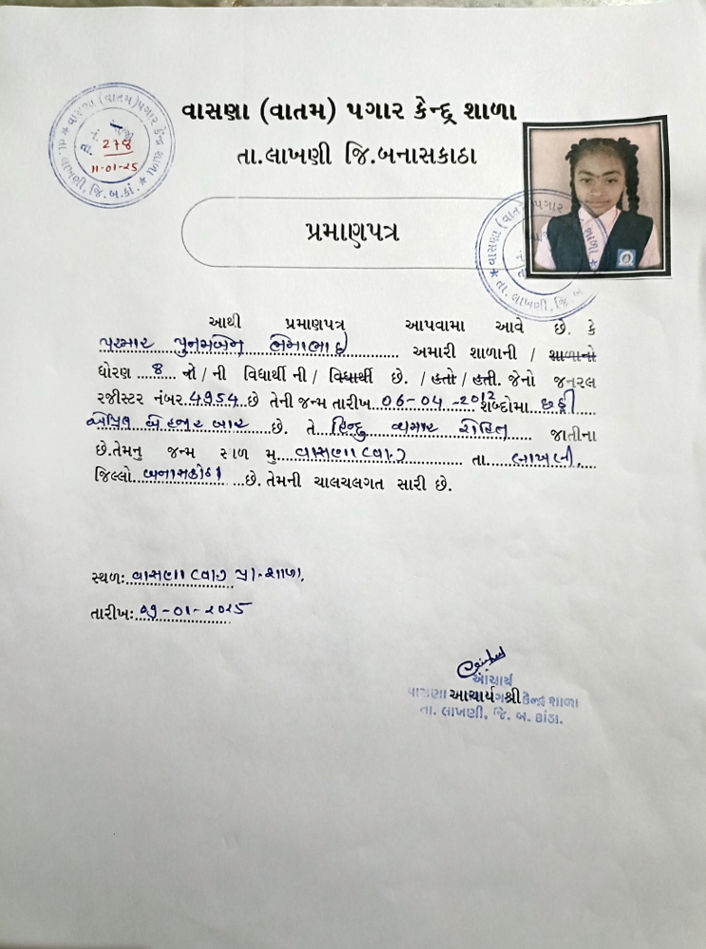 વાસણા (વાતમ) પગાર કેન્દ્ર શાળા
તા.લાખણી જિ.બનાસકાઠા
વાસણા (વાતમ) પગાર કેન્દ્ર શાળા
નં.
તા.
278
11-01-25
તા. લાખણી, જિ.બ.કાં.
પ્રમાણપત્ર
વાસણા (વાતમ) પગાર
શાળા
તા. લાખણી, જિ. બ
આથી પ્રમાણપત્ર આપવામા આવે છે. કે
પરમાર પુનમબેન ભેમાભાઈ અમારી શાળાની / શાળાનો
ધોરણ 8 નો / ની વિધાર્થી ની / વિધાર્થી છે. / હતો / હતી. જેનો જનરલ
રજીસ્ટર નંબર 4954 છે તેની જન્મ તારીખ 06-04-2012 શબ્દોમા છઠ્ઠી
એપ્રિલ બે હજાર બાર છે. તે હિન્દુ જાતીના
છે.તેમનુ જન્મ સ્થળ મુ. વાસણા (વા) તા. લાખણી,
જિલ્લો બનાસકાંઠા છે. તેમની ચાલચલગત સારી છે.
સ્થળ: વાસણા (વા) પ્રા. શાળા,
તારીખ: -01-2025
આચાર્ય
આચાર્યશ્રી
વાસણા કેન્દ્ર શાળા
તા. લાખણી, જિ. બ. કાંઠા.